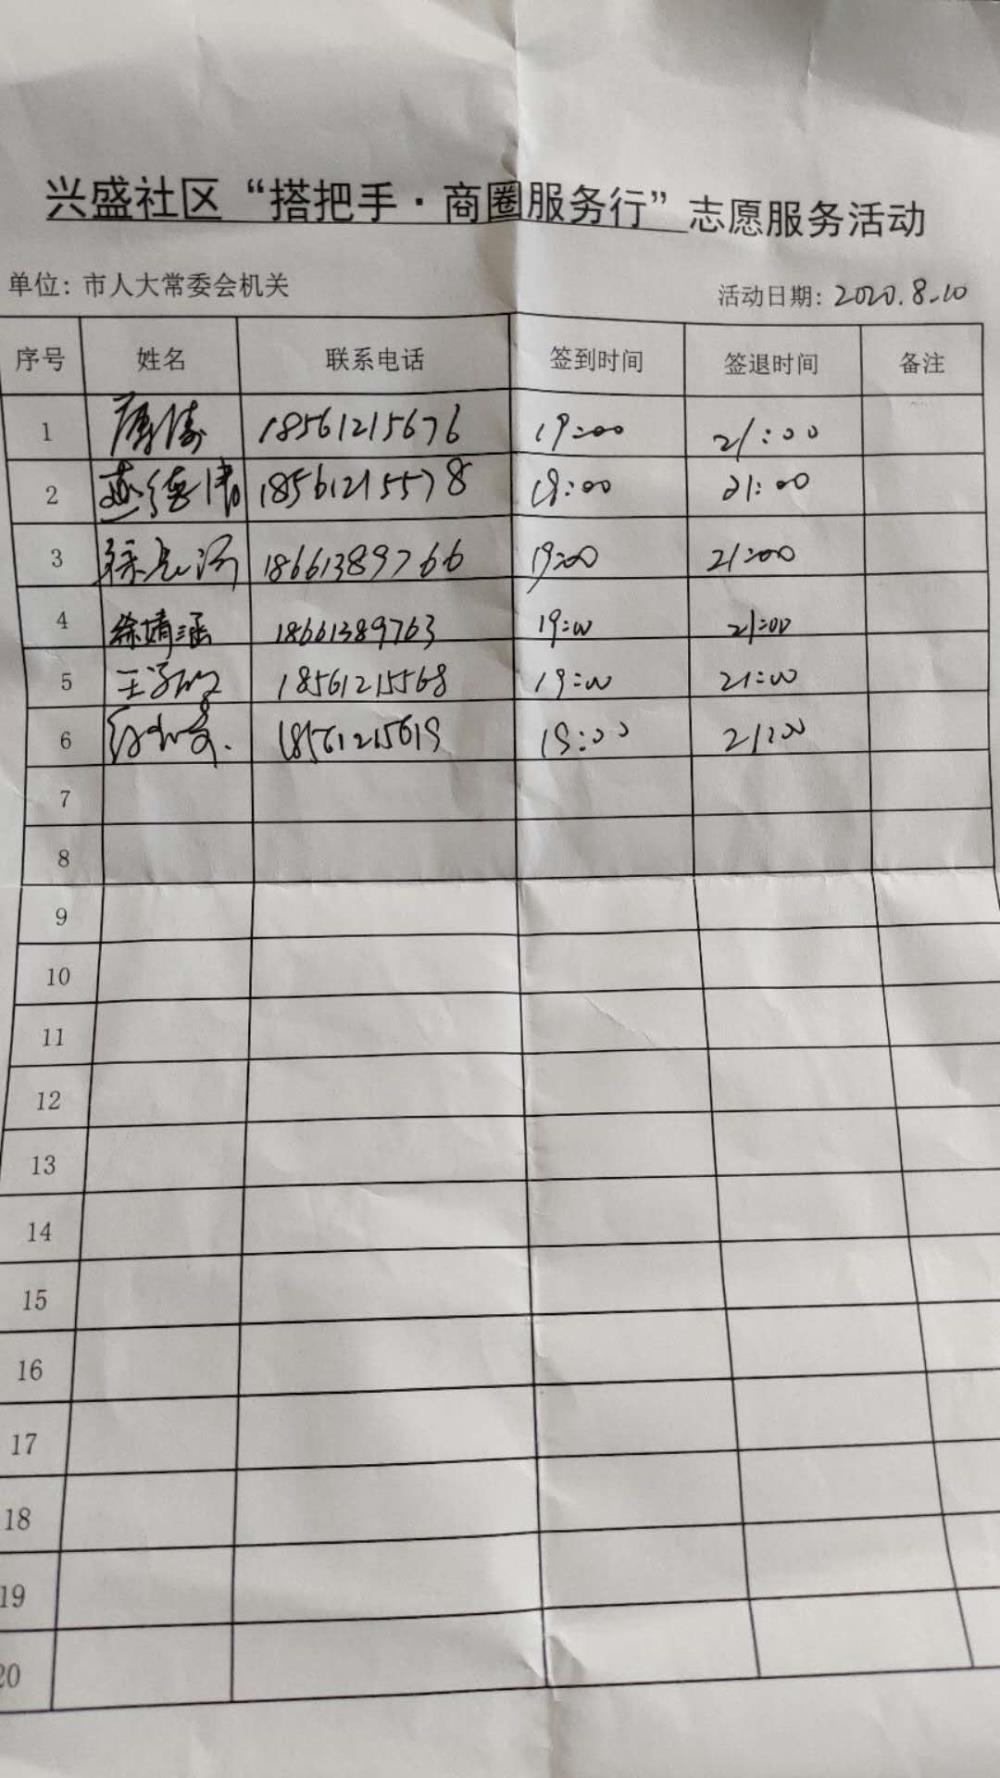 兴盛社区“搭把手·商圈服务行”志愿服务活动
单位：市人大常委会机关 活动日期：2020.8.10
序号 姓名 联系电话 签到时间 签退时间 备注
1 18561215676 19:00 21:00
2 赵德伟 18561215578 19:00 21:00
3 18661389766 19:00 21:00
4 徐婧涵 18661389763 19:00 21:00
5 18561215568 19:00 21:00
6 18561215619 19:00 21:00
7
8
9
10
11
12
13
14
15
16
17
18
19
20